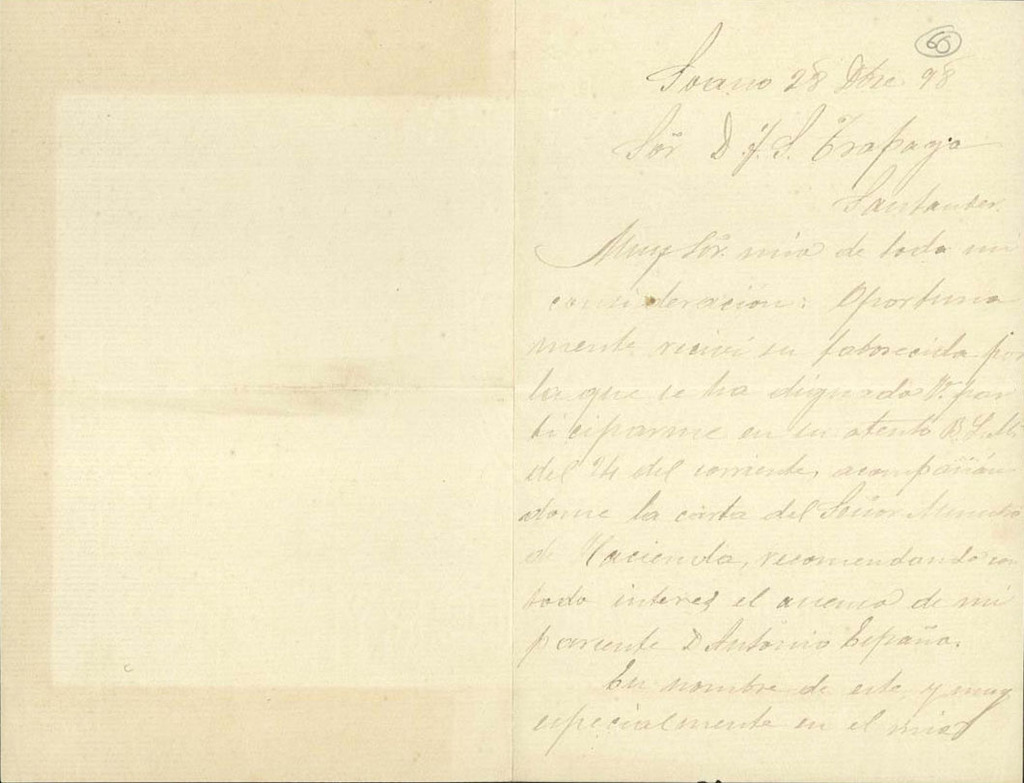 66
Soano 28 Dbre 98
Sor D. J. S. Trapaga
Santander.
Muy Sor. mio de toda mi
consideración: Oportuna
mente reciví su faborecida por
la que se ha dignado V. par
ticiparme en su atento B. L. M.
del 24 del corriente, acompañán
dome la carta del Señor Ministro
de Hacienda, recomendando con
todo interes el de mi
pariente D Antonio España.
En nombre de este y muy
especialmente en el mio